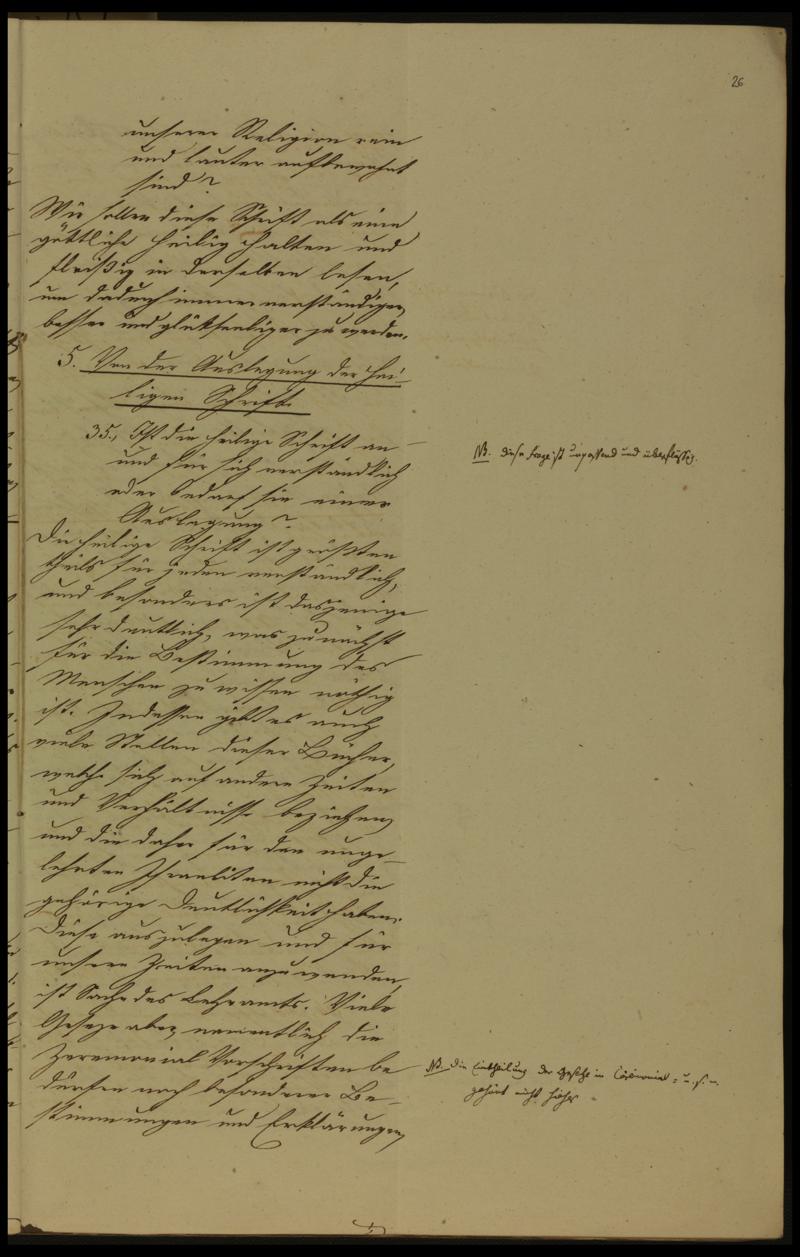 26
unserer Religion rein
und lauter aufbewahrt
sind?
Wir sollen diese Schrift als eine
göttliche heilig halten und
fleißig in derselben lesen,
um dadurch immer verständiger,
besser und glükseeliger zu werden.
5. Von der Auslegung der hei-
ligen Schrift.
35., Ist die heilige Schrift an
und für sich verständlich
oder bedarf sie einer
Auslegung?
NB. diese Frage ist unpassend und überflüssig.
Die heilige Schrift ist größten
theils für jeden verständlich,
und besonders ist dasjenige
sehr deutlich, was zunächst
für die Bestimmung des
Menschen zu wissen nöthig
ist. Indessen gibt es auch
viele Stellen dieser Bücher,
welche sich auf andere Zeiten
und Verhältnisse beziehen,
und die daher für den unge-
lehrten Israeliten nicht die
gehörige Deutlichkeit haben.
Diese auszulegen und für
unsere Zeiten anzuwenden,
ist Sache des Lehramts. Viele
Geseze aber, namentlich die
Zeremonial Vorschriften be
dürfen noch besonderer Be-
stimmungen und Erklärungen,
NB. die Eintheilung der Gesetze in Ceremonial- u. s. w.
gehört nicht hieher